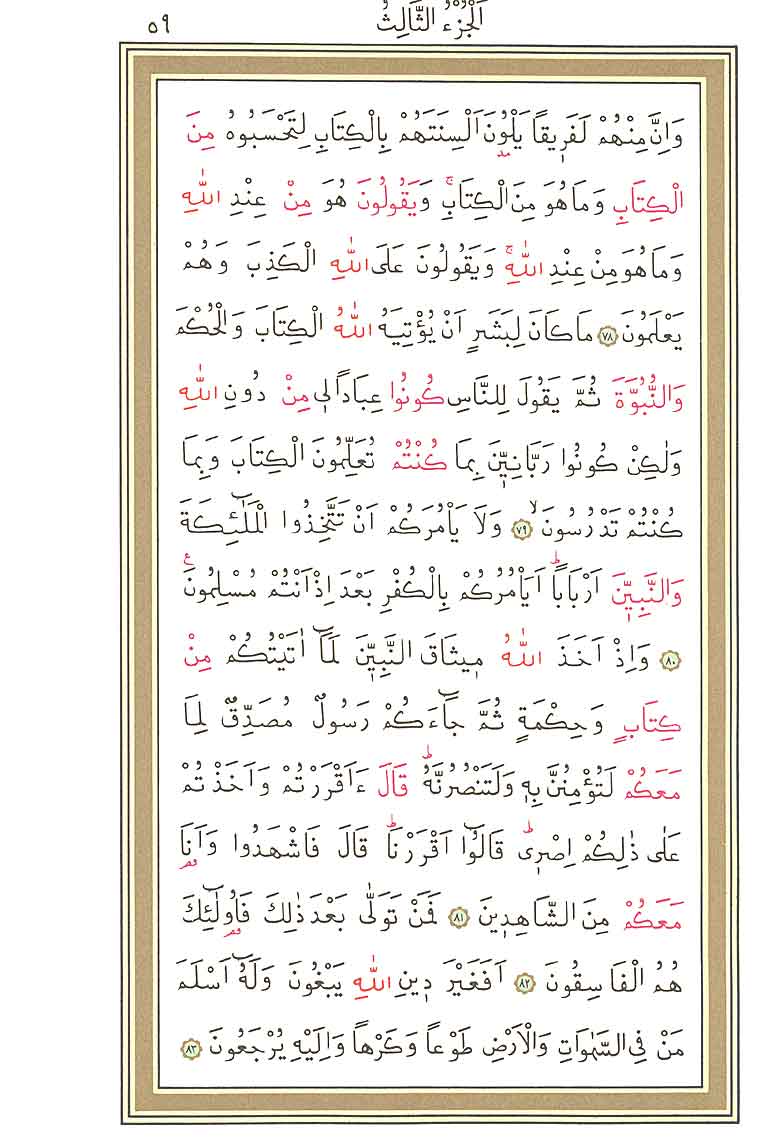 اَلْجُزْءُ الثَّالِثُ ٥٩
وَاِنَّ مِنْهُمْ لَفَرٖيقًا يَلْوُ۫نَ اَلْسِنَتَهُمْ بِالْكِتَابِ لِتَحْسَبُوهُ مِنَ
الْكِتَابِ وَمَا هُوَ مِنَ الْكِتَابِۚ وَيَقُولُونَ هُوَ مِنْ عِنْدِ اللّٰهِ
وَمَا هُوَ مِنْ عِنْدِ اللّٰهِۚ وَيَقُولُونَ عَلَى اللّٰهِ الْكَذِبَ وَهُمْ
يَعْلَمُونَ ﴿٧٨﴾ مَا كَانَ لِبَشَرٍ اَنْ يُؤْتِيَهُ اللّٰهُ الْكِتَابَ وَالْحُكْمَ
وَالنُّبُوَّةَ ثُمَّ يَقُولَ لِلنَّاسِ كُونُوا عِبَادًا لٖى مِنْ دُونِ اللّٰهِ
وَلٰكِنْ كُونُوا رَبَّانِيّٖنَ بِمَا كُنْتُمْ تُعَلِّمُونَ الْكِتَابَ وَبِمَا
كُنْتُمْ تَدْرُسُونَۙ ﴿٧٩﴾ وَلَا يَأْمُرَكُمْ اَنْ تَتَّخِذُوا الْمَلٰٓئِكَةَ
وَالنَّبِيّٖنَ اَرْبَابًاؕ اَيَأْمُرُكُمْ بِالْكُفْرِ بَعْدَ اِذْ اَنْتُمْ مُسْلِمُونَࣖ
﴿٨٠﴾ وَاِذْ اَخَذَ اللّٰهُ مٖيثَاقَ النَّبِيّٖنَ لَمَٓا اٰتَيْتُكُمْ مِنْ
كِتَابٍ وَحِكْمَةٍ ثُمَّ جَٓاءَكُمْ رَسُولٌ مُصَدِّقٌ لِمَا
مَعَكُمْ لَتُؤْمِنُنَّ بِهٖ وَلَتَنْصُرُنَّهُؕ قَالَ ءَاَقْرَرْتُمْ وَاَخَذْتُمْ
عَلٰى ذٰلِكُمْ اِصْرٖىؕ قَالُٓوا اَقْرَرْنَاؕ قَالَ فَاشْهَدُوا وَاَنَا
مَعَكُمْ مِنَ الشَّاهِدٖينَ ﴿٨١﴾ فَمَنْ تَوَلّٰى بَعْدَ ذٰلِكَ فَاُولٰٓئِكَ
هُمُ الْفَاسِقُونَ ﴿٨٢﴾ اَفَغَيْرَ دٖينِ اللّٰهِ يَبْغُونَ وَلَهُٓ اَسْلَمَ
مَنْ فِى السَّمٰوَاتِ وَالْاَرْضِ طَوْعًا وَكَرْهًا وَاِلَيْهِ يُرْجَعُونَ ﴿٨٣﴾